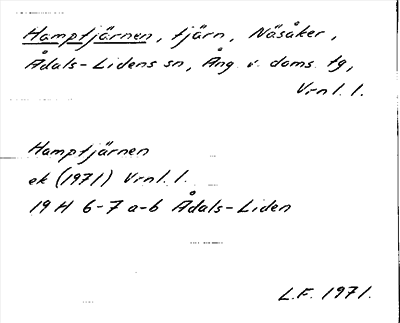 Hamptjärnen, tjärn, Näsåker,
Ådals-Lidens sn, Ång v. doms. tg,
Vrnl. l.
Hamptjärnen
ek (1971) Vrnl. l.
19 H 6-7 a-b Ådals-Liden
L.F. 1971.